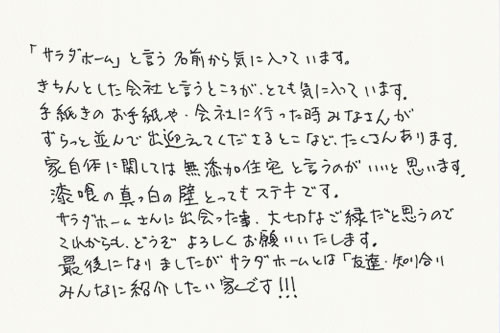 「サラダホーム」と言う名前から気に入っています。
きちんとした会社と言うところが、とても気に入っています。
手紙きのお手紙や・会社に行った時みなさんが
ずらっと並んで出迎えてくださるとこなど、たくさんあります。
家自体に関しては無添加住宅と言うのがいいと思います。
漆喰の真っ白の壁とってもステキです。
サラダホームさんに出会った事、大切なご縁だと思うので
これからも、どうぞよろしくお願いいたします。
最後になりましたがサラダホームとは「友達・知り合い
みんなに紹介したい家」です!!!